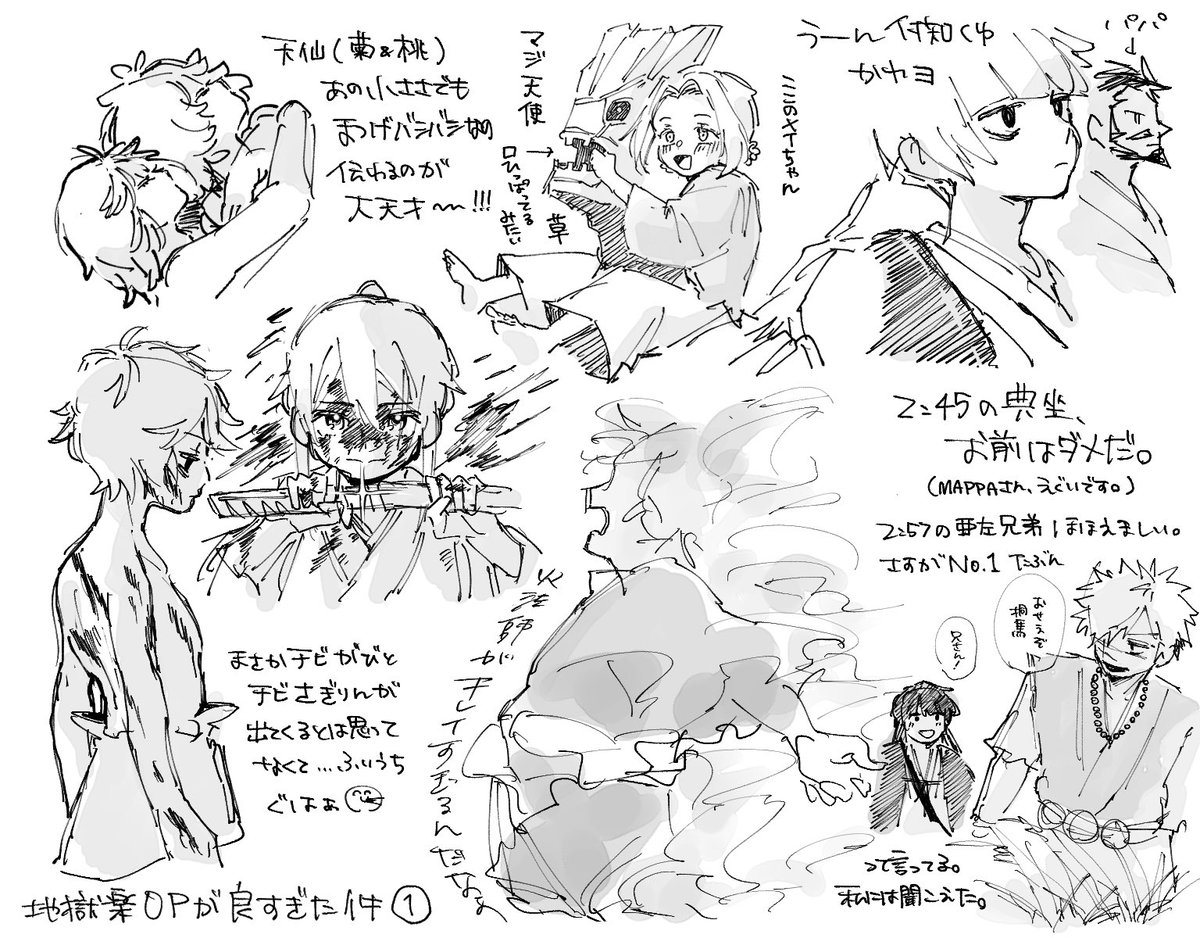 天仙(菊&桃)
あの小ささでも
まつげバシバシなの
伝わるのが
大天才〜!!!
マジ天使
→
口ひっぱってる
みたい
草
ここのメイちゃん
うーん付知くゆ
かヤヨ
パパ
↓
2:45の典坐、
お前はダメだ。
(MAPPAさん、えぐいです。)
2:57の亜左兄弟ほほえましい。
さすがNo.1 たぶん
おせぇぞ
桐馬
兄さん!
って言ってる。
私には聞こえた。
まさかチビがびと
チビさぎりんが
出てくるとは思って
なくて…ふいうち
ぐはぁ
火法師がキレイすぎるんだなぁ
地獄楽OPが良すぎた件①